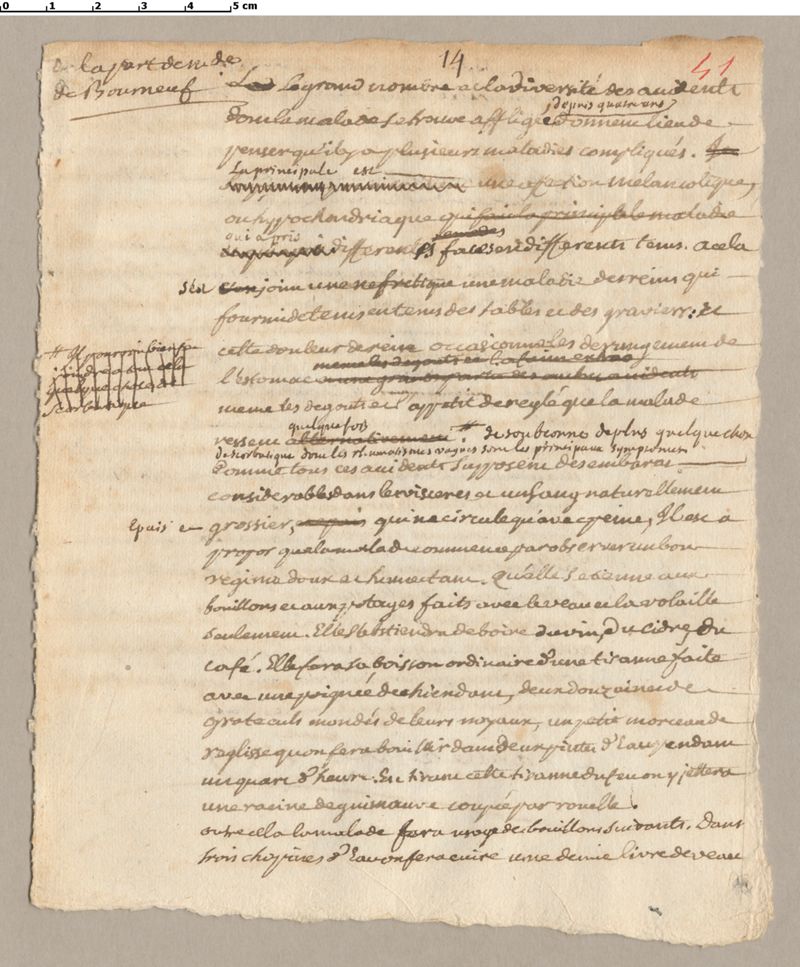 0 1 2 3 4 5 cm
14
51
a la part de m de
de Bourneuf
Le grand nombre et la diversité des accidents
depuis quatre ans
dont la malade se trouve affligée donnent lieu de
penser qu'il y a plusieurs maladies compliqués.
La principale est
une afection mélancolique,
ou hÿppochondriaque qui fait la principale maladie
qui a pris
differentes faces en differents tems. a cela
s'est joint une nefretique une maladie des reins qui
fournit de tems en tems des sables et des graviers: et
cette douleur de rein occasionne les derangement de
meme les degouts et la faim
l'estomac
meme les degouts et l'appetit dereglé que la malade
quelque fois
ressent alternativement. Je soubconne de plus quelque chose
de scorbutique dont les rhumatismes vagues sont les principaux symptomes
Comme tous ces accidents supposent des embaras
considerables dans les visceres et un sang naturellement
Epais et grossier, qui ne circule qu'avec peine, Il est a
propos que la malade commence par observer un bon
regime doux et humectant. Qu'elle se tienne aux
bouillons et aux potages faits avec le veau et la volaille
seulement. Elle s'abstiendra de boire du vin, du cidre, du
café. Elle fera sa boisson ordinaire d'une tisanne faite
avec une poignée de chiendent, deux douzaines de
grateculs mondés de leurs noyaux, un petit morceau de
reglisse qu'on fera bouillir dans deux pintes d'Eau pendant
un quart d'heure. En tirant cette tisanne du feu on y jettera
une racine de guimauve coupée par rouelle.
outre cela la malade fera usage des bouillons suivants. Dans
trois chopines d'Eau on fera cuire une demie livre de veau